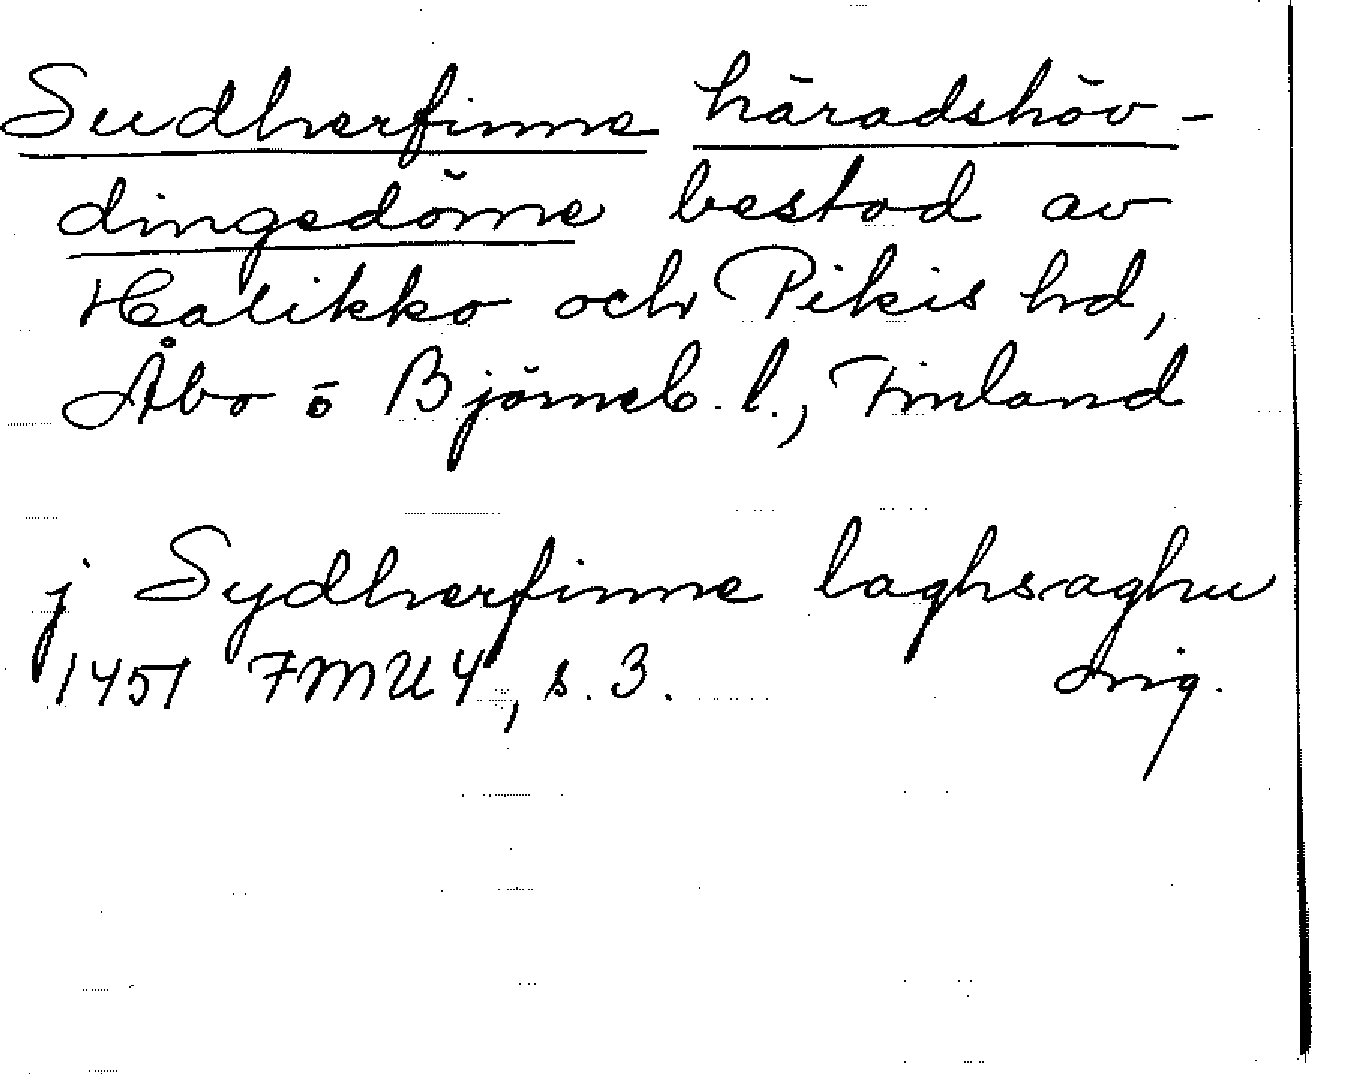 Sudherfinne häradshöv-
dingedöme bestod av
Halikko och Pikis hd,
Åbo o Björneb. l., Finland
j Sydherfinne laghsaghu
1451 FMU 4, s. 3. orig.